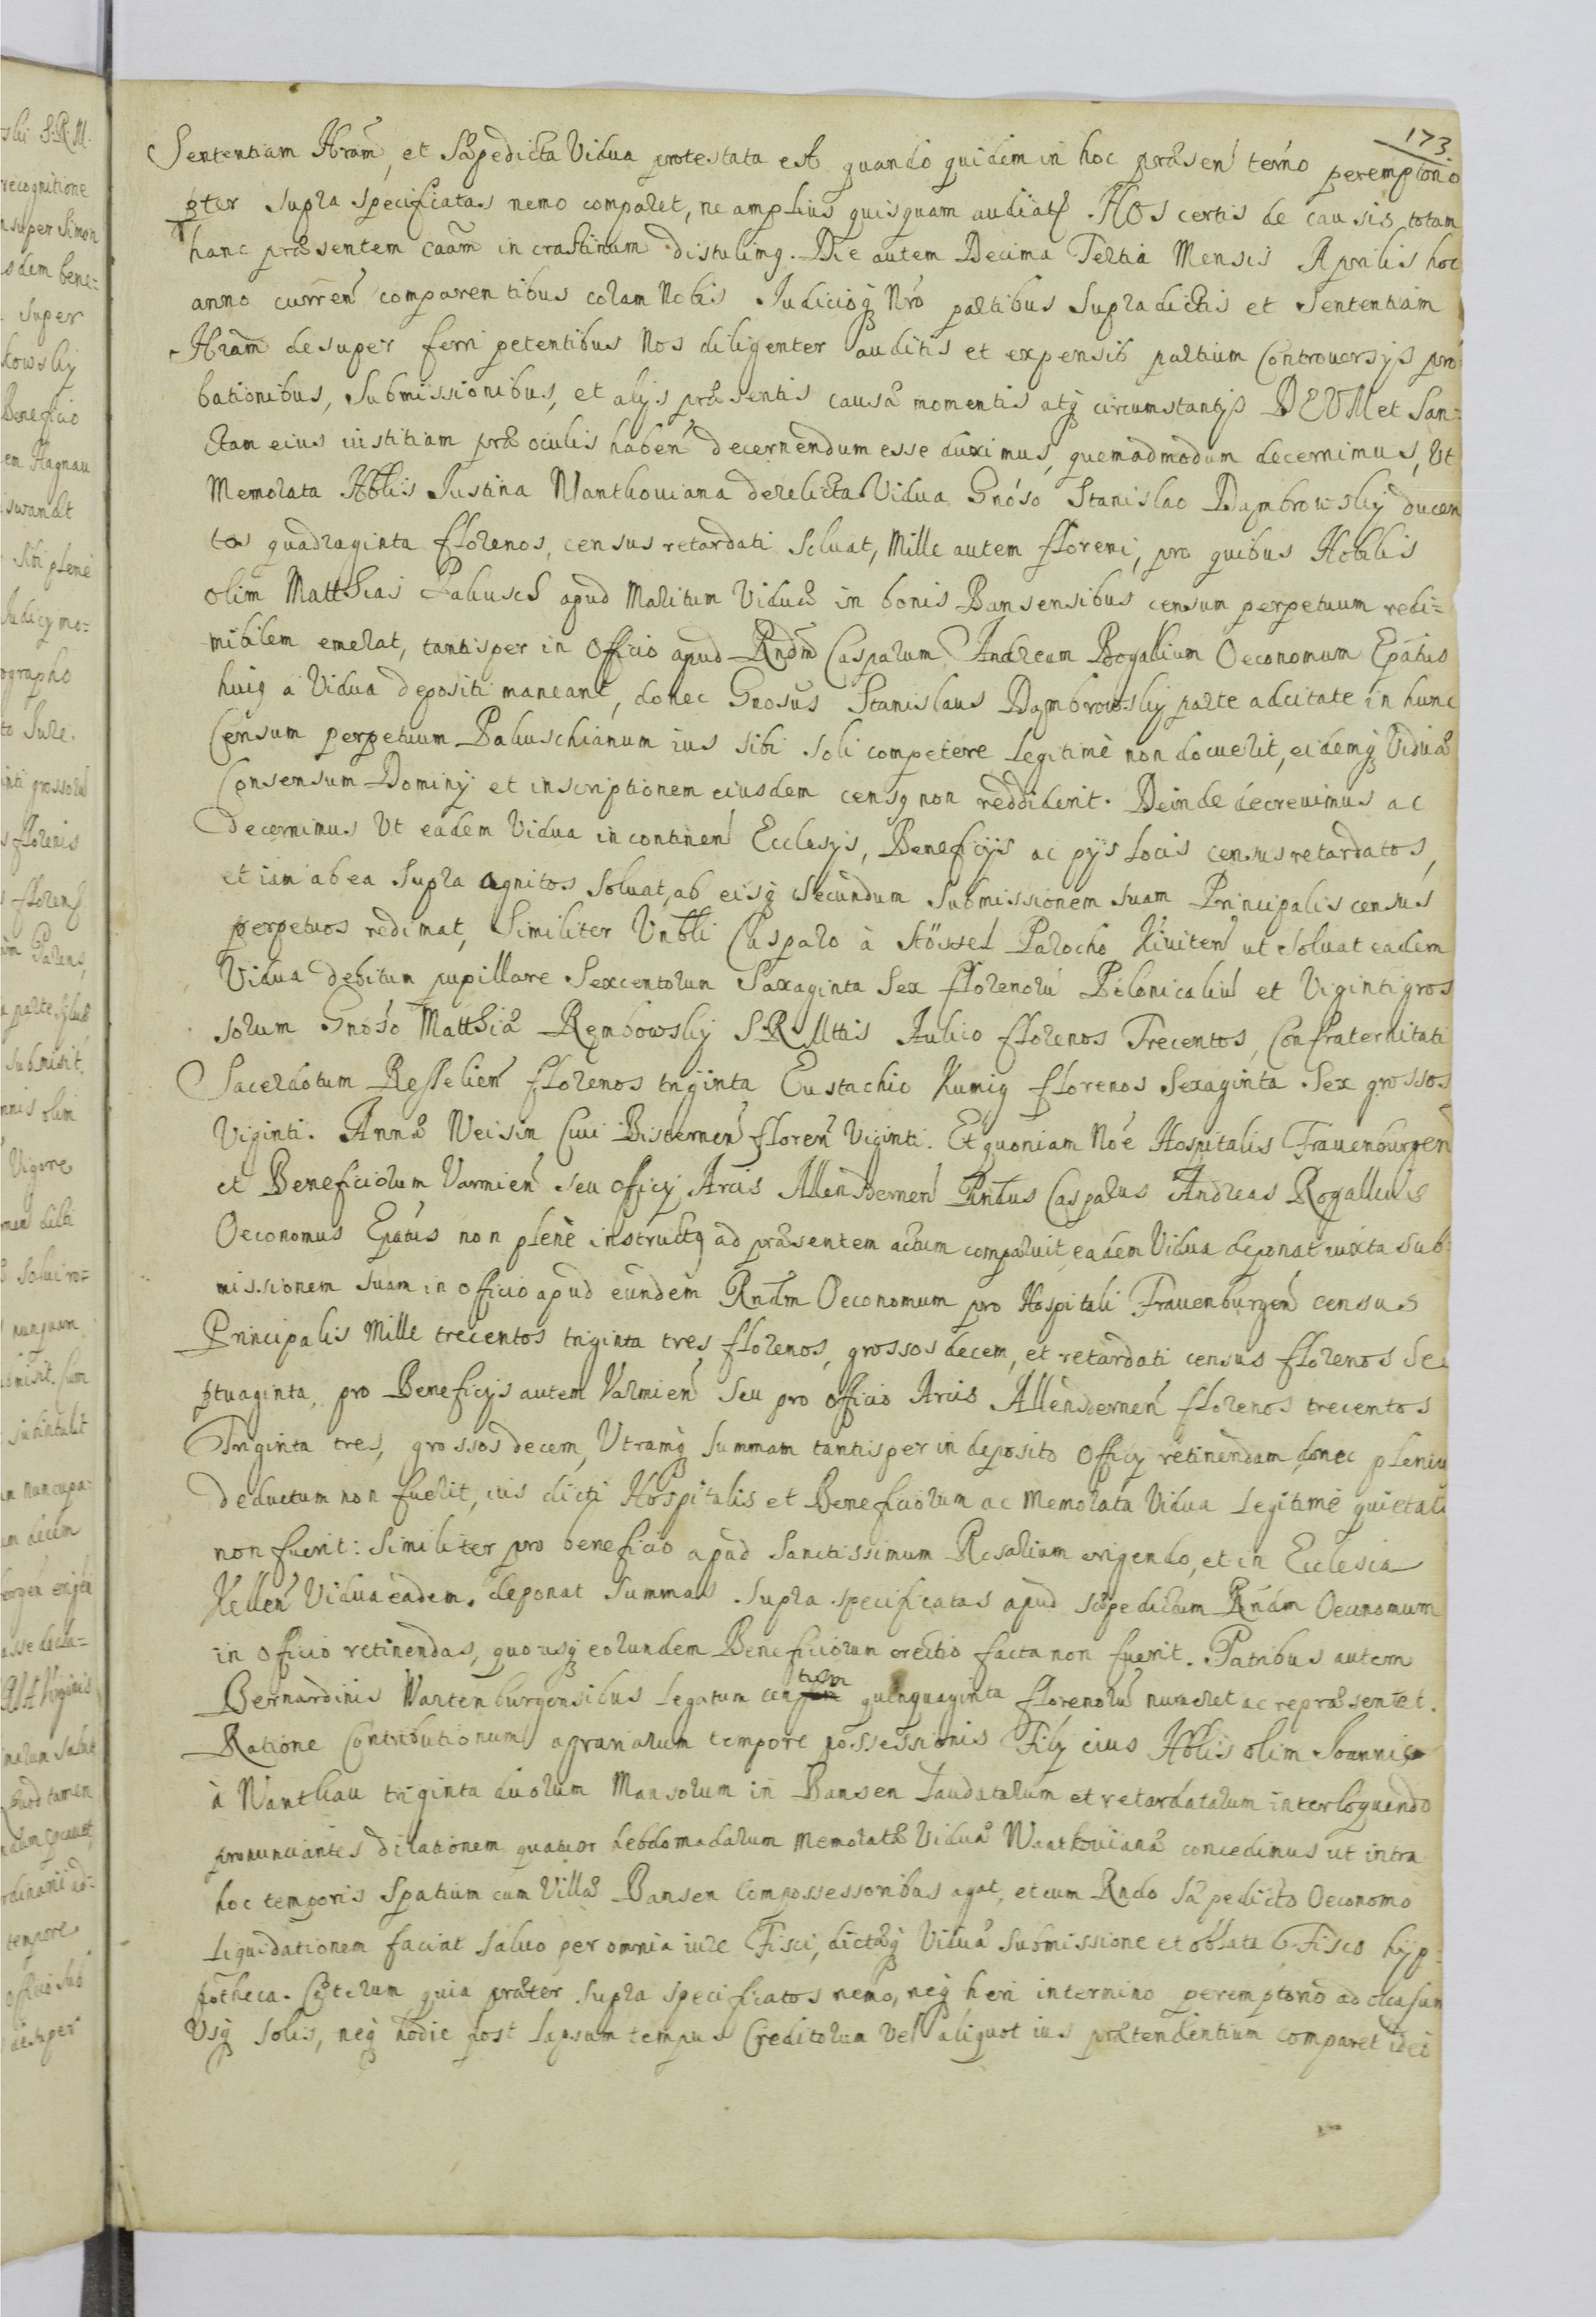 173.
Sententiam Nram, et Sæpedicta Vidua protestata est quando quidem in hoc præsen terno peremptorio
pter supra specificatas nemo comparet, ne amplius quisquam audiatr. NOs certis de causis totam
hanc præsentem caam in crastinum distulimq. Die autem Decima Tertia Mensis Aprilis hoc
anno curren comparentibus coram Nobis Judicioq Nro partibus supradictis et Sententiam
Nram desuper ferri petentibus Nos diligenter auditis et expensis partium Controuersijs pro
bationibus, Submissionibus, et alijs præsentis causæ momentis atq circumstantijs DEUM et San=
ctam eius iustitiam præ oculis haben decernendum esse duximus, quemadmodum decernimus, Ut
Memorata Nblis Justina Wantkouiana derelicta Vidua Gnoso Stanislao Dąmbrowskÿ ducen
tos quadraginta florenos, census retardati soluat, Mille autem floreni, pro quibus Nobilis
olim Matthias Pakusch apud Maritum Viduæ in bonis Bansensibus censum perpetuum redi=
mibilem emerat, tantisper in Officio apud Rndm Casparum Andream Rogallium Oeconomum Epatus
huiq a Vidua depositi maneant, donec Gnosus Stanislaus Dąmbrowskÿ parte adcitate in hunc
Censum perpetuum Pakuschianum ius sibi soli competere legitimè non docuerit, eidemq Viduæ
Consensum Dominÿ et inscriptionem eiusdem censq non reddiderit. Deinde decreuimus ac
decernimus Ut eadem Vidua in continen Ecclesijs, Beneficijs ac pijs locis census retardatos,
et iam ab ea supra agnitos soluat, ab eisq secundum submissionem suam Principalis census
perpetuos redimat, Similiter Vnbli Casparo à Stössel Parocho Kiuiten ut soluat eadem
Vidua debitum pupillare Sexcentorum Saxaginta Sex florenorū Polonicaliū et Viginti gros
sorum Gnoso Matthiæ Rembowskÿ S. R. Mttis Aulico florenos Trecentos, Confraternitati
Sacerdotum Resselien florenos triginta Eustachio Kumig florenos Sexaginta Sex grossos
Viginti. Annæ Weisin Ciui Bisternen floren Viginti. Et quoniam Noe Hospitalis Frauenburgen
et Beneficiorum Varmien seu officij Arcis Allensteinen Rndus Casparus Andreas Rogallius
Oeconomus Epatus non plenè instructq ad præsentem actum comparuit, eadem Vidua deponat iuxta sub
missionem suam in officio apud eundem Rndm Oeconomum pro Hospitali Frauenburgen census
Principalis Mille trecentos triginta tres florenos, grossos decem, et retardati census florenos Se
ptuaginta, pro Beneficijs autem Varmien seu pro officio Arcis Allensteinen florenos trecentos
Triginta tres, grossos decem, Utramq summam tantisper in deposito Officij retinendam, donec pleniu
deductum non fuerit, ius dicti Hospitalis et Beneficiorum ac memorata Vidua legitimè quietata
non fuerit: Similiter pro beneficio apud Sanctissimum Rosarium erigendo, et in Ecclesia
Kellen Vidua eadem deponat summas supra specificatas apud sæpedictum Rndm Oeconomum
in officio retinendas, quo usq eorundem Beneficiorum erectio facta non fuerit. Patribus autem
Bernardinis Wartenburgensibus legatum centum quinquaginta florenorū numeret ac repræsentet.
Ratione Contributionum agrariarum tempore possessionis Filÿ eius Nblis olim Joannis
à Wantkau triginta duorum Mansorum in Bansen laudatarum et retardatarum interloquendo
pronunciantes dilationem quatuor hebdomadarum memoratæ Viduæ Wantkouianæ concedimus ut intra
hoc temporis spatium cum Villæ Bansen Compossessoribus agat, et cum Rndo sæpedicto Oeconomo
Liquidationem faciat saluo per omnia iure Fisci, dictæq Viduæ submissione et oblata Fisco hÿp=
potheca. Cæterum quia præter supra specificatos nemo, neq heri in termino peremptorio ad occasum
Usq Solis, neq hodie post lapsum tempus Creditorum vel aliquot ius prætendentium comparet ideo